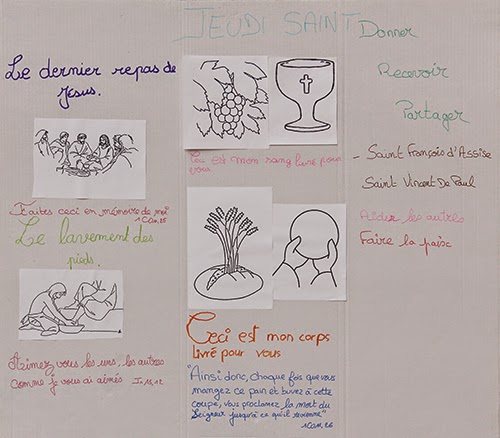 JEUDI SAINT
Le dernier repas de
Jesus.
Faites ceci en mémoire de moi
Le lavement des
pieds.
Aimez vous les uns, les autres
comme je vous ai aimés
Ceci est mon sang livré pour
vous
Ceci est mon corps
livré pour vous
"Ainsi donc, chaque fois que vous
mangez ce pain et buvez à cette
coupe, vous proclamez la mort du
Seigneur jusqu'à ce qu'il revienne"
Donner
Recevoir
Partager
- Saint François d'Assise
Saint Vincent De Paul
Aider les autres
Faire la paix